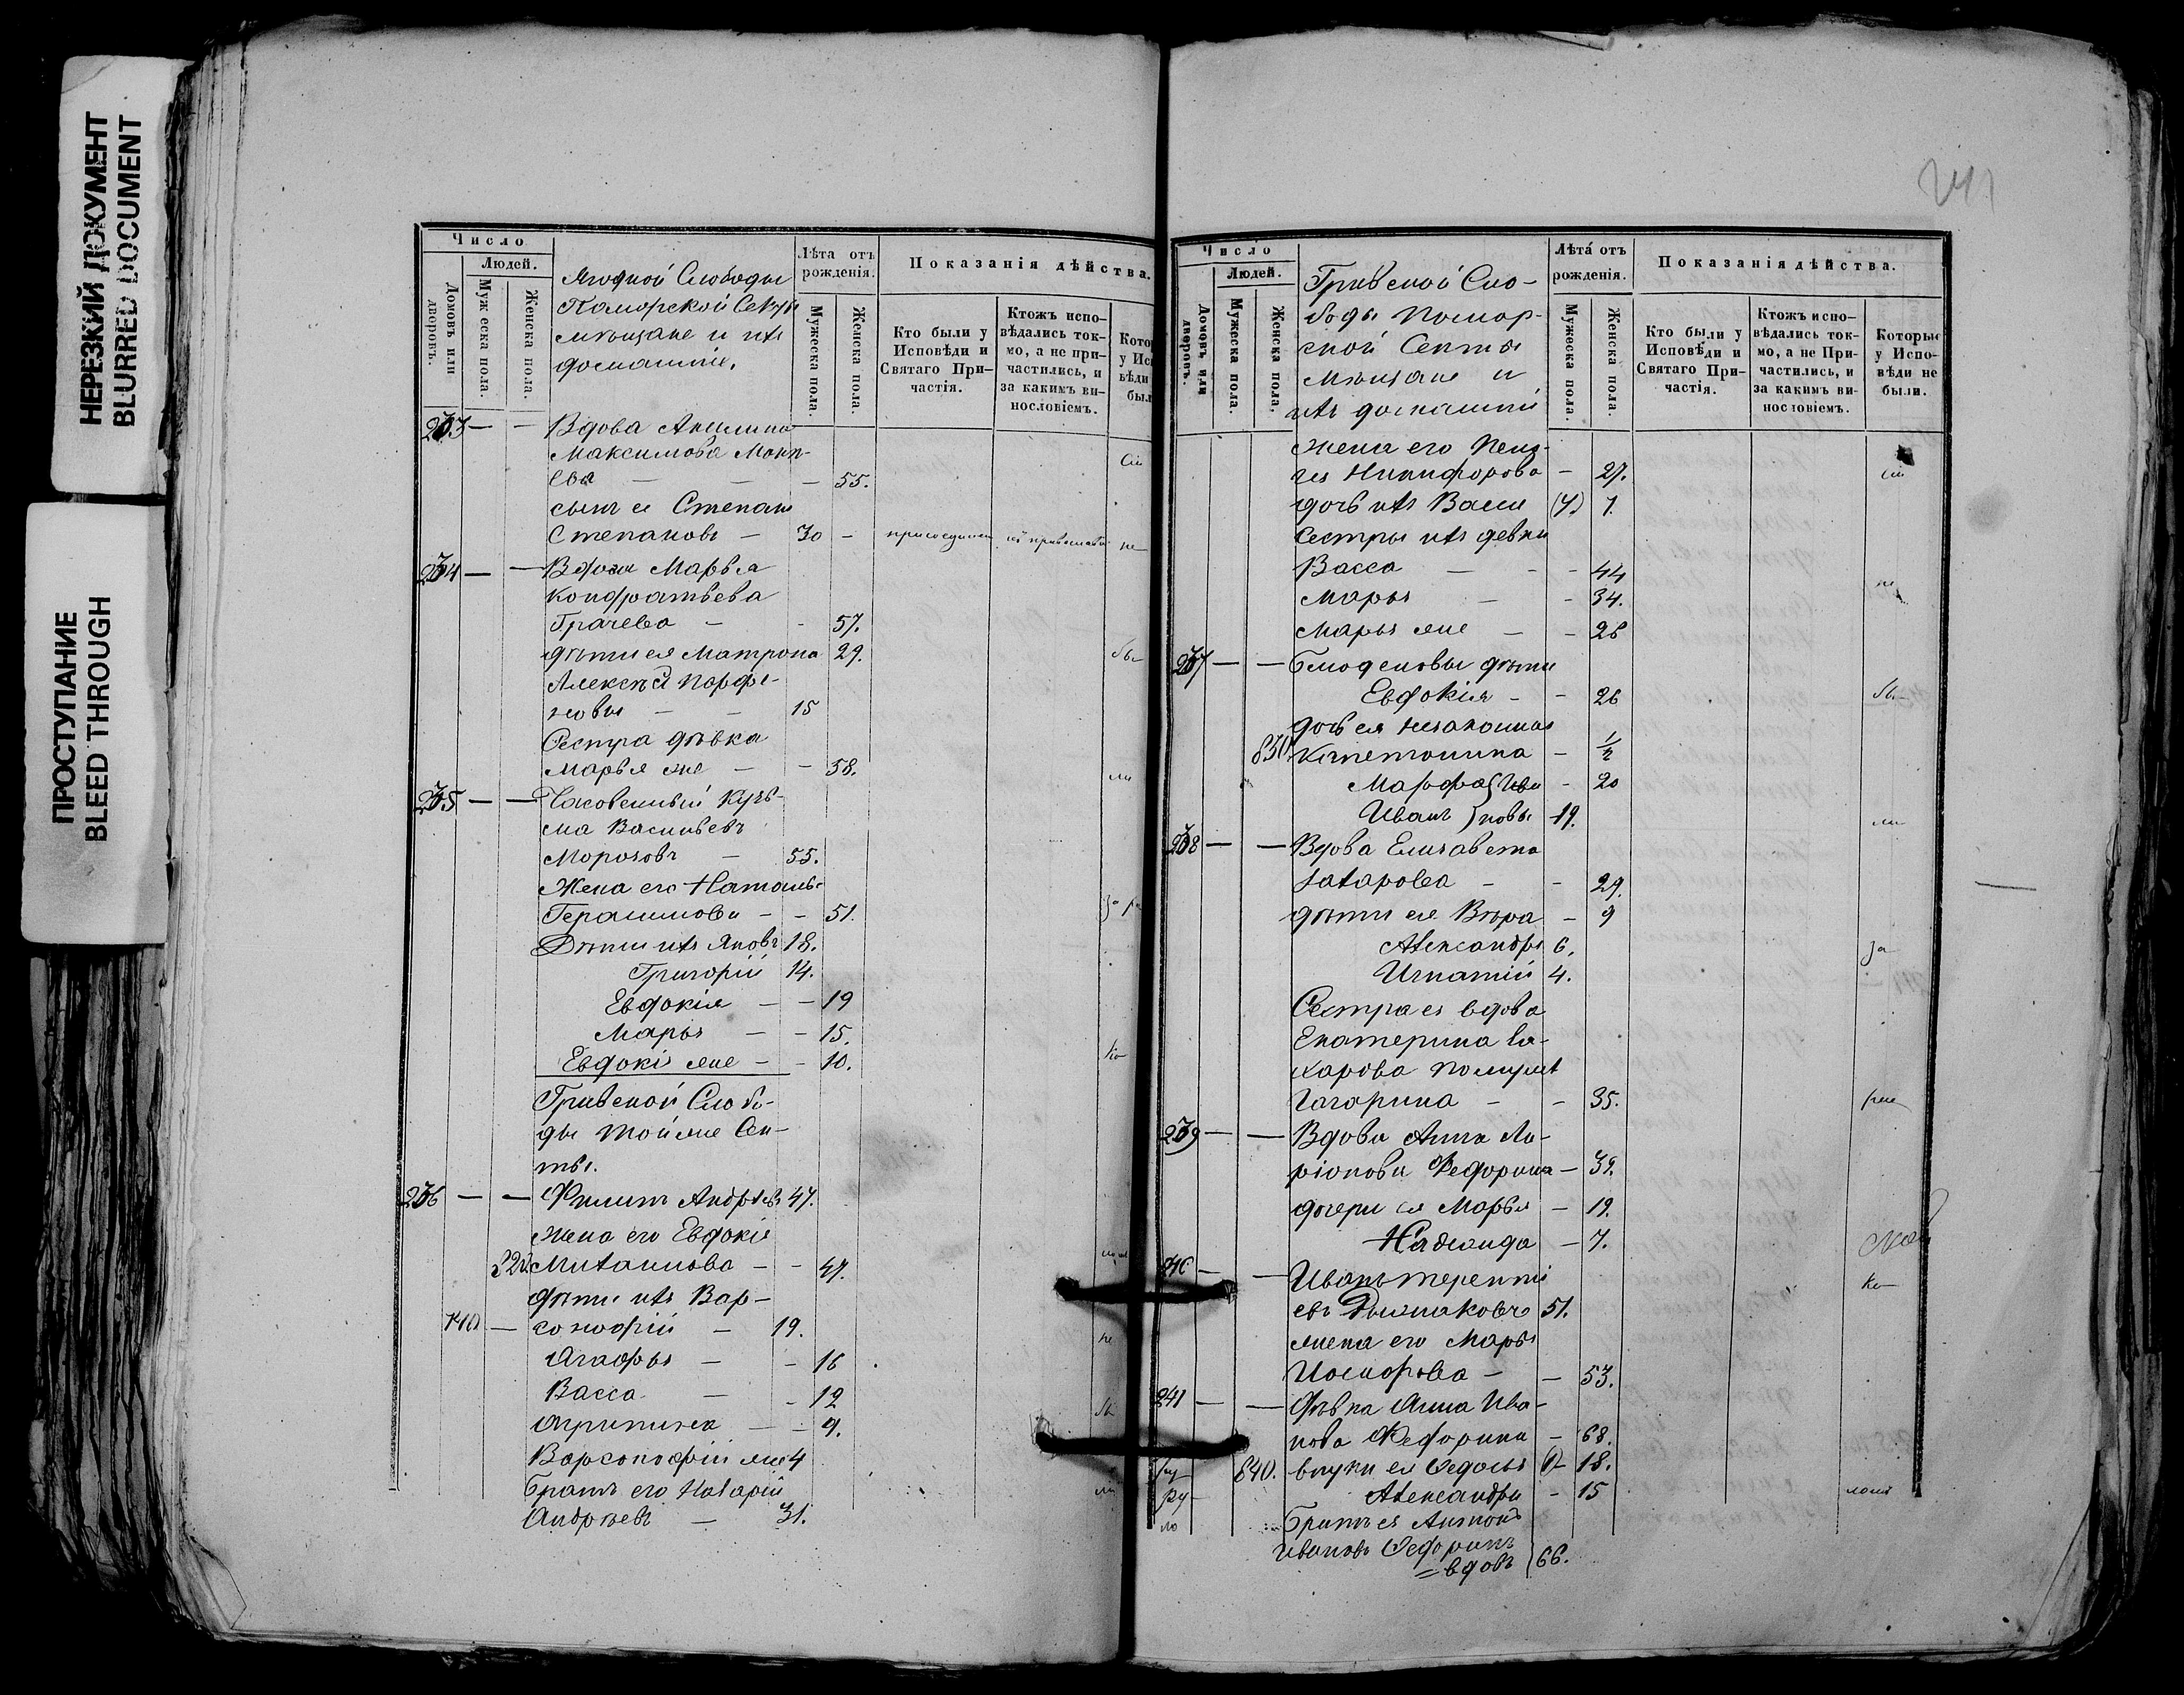 НЕРЕЗКИЙ ДОКУМЕНТ
BLURRED DOCUMENT
ПРОСТУПАНИЕ
BLEED THROUGH
Число
Людей.
Домовъ или дворовъ.
Мужеска пола.
Женска пола.
Ягодной Слободы
Поморской Секты
мѣщане и ихъ
домашніе.
Лѣта отъ рожденія.
Мужеска пола.
Женска пола.
Показанія дѣйства.
Кто были у Исповѣди и Святаго Причастія.
Ктожъ исповѣдались токмо, а не причастились, и за какимъ винословіемъ.
233 — — Вдова Акилина
Максимова Мокѣ-
ева — 55.
сынъ ея Степанъ
Степановъ — 30 —
234 — — Вдова Марья
Кондратьева
Грачева — 57.
дѣти ея Матрона 29.
Алексѣй Парфе-
новы — 15
Сестра дѣвка
Марья же — 58.
235 — — Часовенный Кузь-
ма Васильевъ
Морозовъ — 55.
Жена его Наталья
Герасимова — 51.
Дѣти ихъ Яковъ 18.
Григорій 14.
Евдокія — 19
Марья — 15.
Евдокія же — 10.
Гривской Слобо-
ды той же Сек-
ты.
236 — — Филипъ Андреевъ 47.
жена его Евдокія
Михаилова — 47.
дѣти ихъ Вар-
сонофій — 19.
Агафья — 16
Васса — 12
Агрипина — 9.
Варсонофій же 4
Братъ его Назарій
Андреевъ — 31.
241
Число
Людей.
Домовъ или дворовъ.
Мужеска пола.
Женска пола.
Гривской Сло-
боды Помор-
ской Секты
Мѣщане и
ихъ домашніе
Лѣта отъ рожденія.
Мужеска пола.
Женска пола.
Показанія дѣйства.
Кто были у Исповѣди и Святаго Причастія.
Ктожъ исповѣдались токмо, а не Причастились, и за какимъ винословіемъ.
Которые у Исповѣди не были.
жена его Пела-
гея Никифорова — 27.
дочь ихъ Васса 1.
Сестры ихъ девки
Васса — 44
Марья — 34.
Марья же — 26
237 — — дѣти
Евдокія — 26
дочь ея незаконная
830. — ½
Марфа } Ива — 20
Иванъ } новы 19.
238 — — Вдова Елизавета
Захарова — 29.
дѣти ея Вѣра — 9
Александръ 6.
Игнатій 4.
Сестра ея вдова
Екатерина За-
харова
Гагарина — 35.
239 — — Вдова Анна Ла-
ріонова Федорина — 39.
дочери ея Марья — 19.
Надежда — 7.
240 — — Иванъ Терентьи
евъ 51.
жена его Марья
Іосифова — 53.
241 — — Дѣвка Анна Ива-
нова Федорина — 68.
840. внуки ея Федосья 18.
Александра — 15
Братъ ея Антонъ
Ивановъ Федоринъ
вдовъ 66.